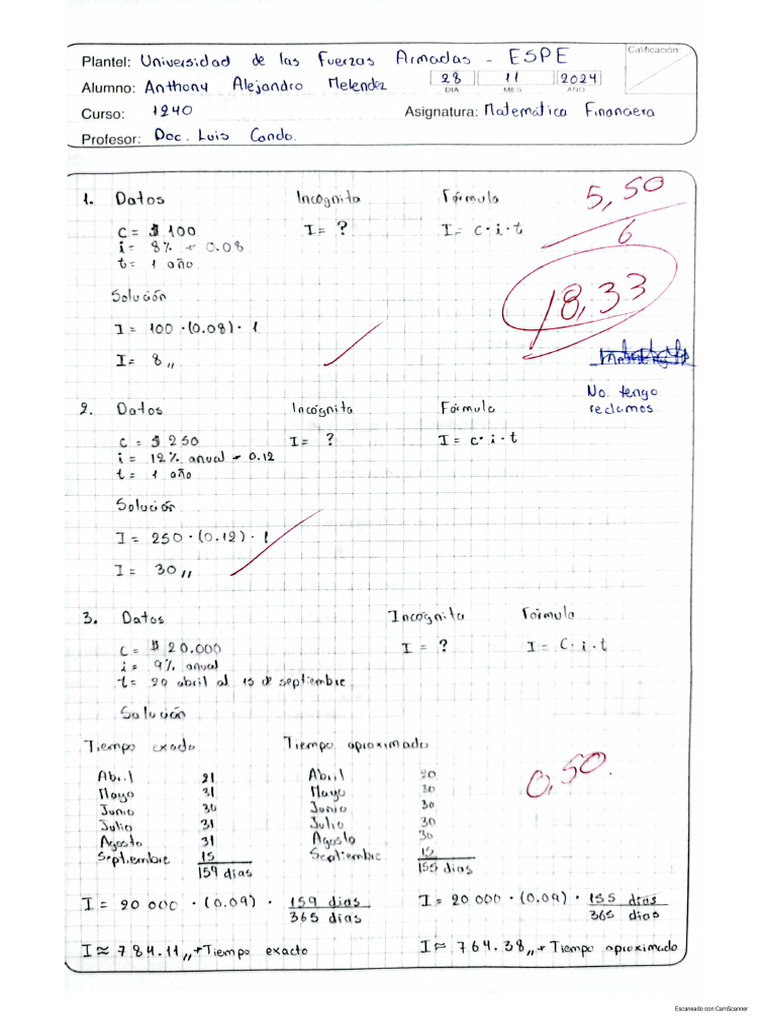 Calificación:
Plantel: Universidad de las Fuerzas Armadas - ESPE
Alumno: Anthony Alejandro Melendez 28 11 2024
DIA MES AÑO
Curso: 1240 Asignatura: Matemática Financiera
Profesor: Doc. Luis Cando.
1. Datos Incógnita Fórmula
5,50
6
C = $ 100 I = ? I = c · i · t
i = 8% → 0.08
t = 1 año
18,33
Solución
I = 100 · (0.08) · 1
I = 8 ,,
No tengo
reclamos
2. Datos Incógnita Fórmula
C = $ 250 I = ? I = c · i · t
i = 12% anual → 0.12
t = 1 año
Solución
I = 250 · (0.12) · 1
I = 30 ,,
3. Datos Incógnita Fórmula
C = $ 20.000 I = ? I = C · i · t
i = 9% anual
t = 20 abril al 15 de septiembre
Solución
Tiempo exacto Tiempo aproximado
Abril 21 Abril 20
Mayo 31 Mayo 30
Junio 30 Junio 30
Julio 31 Julio 30
Agosto 31 Agosto 30
Septiembre 15 Septiembre 15
159 días 155 días
0,50.
I = 20 000 · (0.09) · 159 días / 365 días I = 20 000 · (0.09) · 155 días / 365 días
I ≈ 784.11 ,, → Tiempo exacto I ≈ 764.38 ,, → Tiempo aproximado
Escaneado con CamScanner